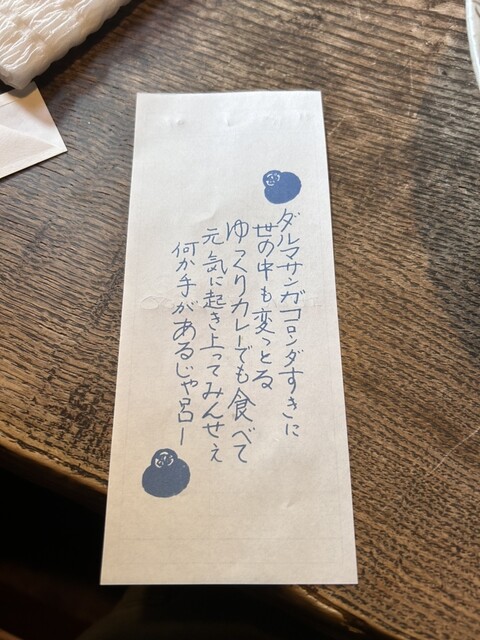 ダルマサンガコロンダすきに
世の中も変っとる
ゆっくりカレーでも食べて
元気に起き上ってみんせぇ
何か手があるじゃ呂ー